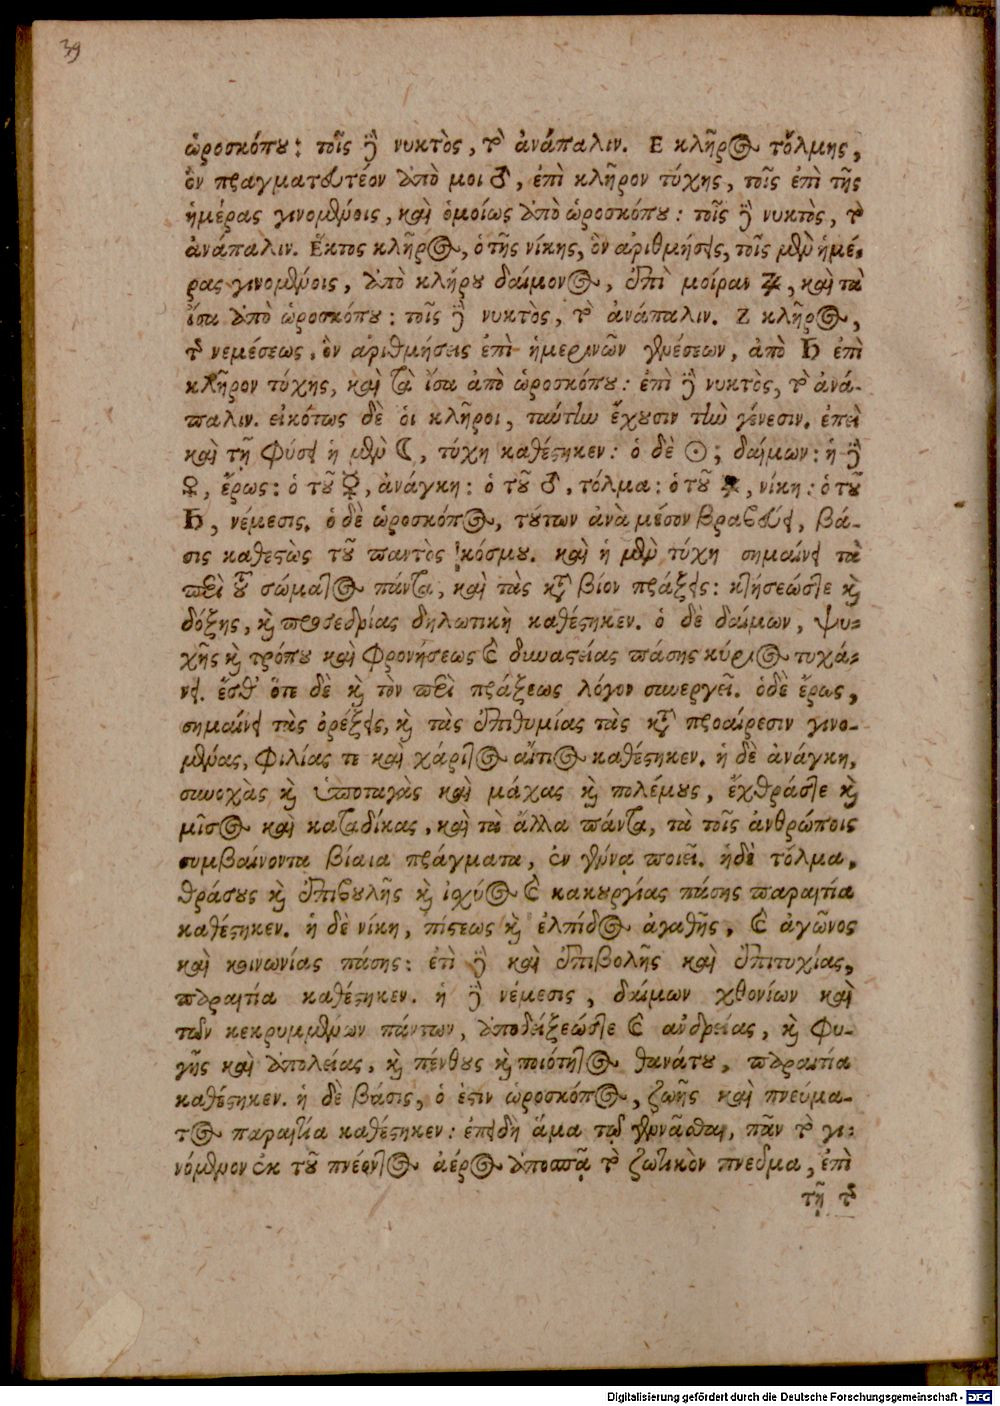 39
ὡροσκόπου: τοῖς δὲ νυκτὸς, τὸ ἀνάπαλιν. Ε κλῆρος τόλμης,
ὃν πραγματευτέον ἀπὸ μοι ♂, ἐπὶ κλῆρον τύχης, τοῖς ἐπὶ τῆς
ἡμέρας γινομένοις, καὶ ὁμοίως ἀπὸ ὡροσκόπου: τοῖς δὲ νυκτὸς, τὸ
ἀνάπαλιν. Ἕκτος κλῆρος, ὁ τῆς νίκης, ὃν ἀριθμήσεις, τοῖς μὲν ἡμέ-
ρας γινομένοις, ἀπὸ κλήρου δαίμονος, ἐπὶ μοίραν ♃, καὶ τὰ
ἴσα ἀπὸ ὡροσκόπου: τοῖς δὲ νυκτὸς, τὸ ἀνάπαλιν. Ζ κλῆρος,
τῆς νεμέσεως, ὃν ἀριθμήσεις ἐπὶ ἡμερινῶν γενέσεων, ἀπὸ ♄ ἐπὶ
κλῆρον τύχης, καὶ τὰ ἴσα ἀπὸ ὡροσκόπου: ἐπὶ δὲ νυκτὸς, τὸ ἀνά-
παλιν. εἰκότως δὲ ὁι κλῆροι, ταύτην ἔχουσιν τὴν γένεσιν. ἐπεὶ
καὶ τῇ φύσει ἡ μὲν ☾, τύχη καθέστηκεν: ὁ δὲ ☉; δαίμων: ἡ δὲ
♀, ἔρως: ὁ τοῦ ☿, ἀνάγκη: ὁ τοῦ ♂, τόλμα: ὁ τοῦ ♃, νίκη: ὁ τοῦ
♄, νέμεσις. ὁ δὲ ὡροσκόπος, τούτων ἀνὰ μέσον βραβεύει, βά-
σις καθεστὼς τοῦ παντὸς κόσμου. καὶ ἡ μὲν τύχη σημαίνει τὰ
περὶ τοῦ σώματος πάντα, καὶ τὰς κατὰ βίον πράξεις: κτήσεώς τε καὶ
δόξης, καὶ προεδρίας δηλωτικὴ καθέστηκεν. ὁ δὲ δαίμων, ψυ-
χῆς καὶ τρόπου καὶ φρονήσεως καὶ δυναστείας πάσης κύριος τυχά-
νει. ἔσθ' ὅτε δὲ καὶ τὸν περὶ πράξεως λόγον συνεργεῖ. ὁ δὲ ἔρως,
σημαίνει τὰς ὀρέξεις, καὶ τὰς ἐπιθυμίας τὰς κατὰ προαίρεσιν γινο-
μένας, φιλίας τε καὶ χάριτος αἴτιος καθέστηκεν. ἡ δὲ ἀνάγκη,
συνοχὰς καὶ ὑποταγὰς καὶ μάχας καὶ πολέμους, ἔχθράς τε καὶ
μῖσος καὶ καταδίκας, καὶ τὰ ἄλλα πάντα, τὰ τοῖς ἀνθρώποις
συμβαίνοντα βίαια πράγματα, ἐν γένηα ποιεῖ. ἡ δὲ τόλμα,
θράσους καὶ ἐπιβουλῆς καὶ ἰσχύος καὶ κακουργίας πάσης παραιτία
καθέστηκεν. ἡ δὲ νίκη, πίστεως καὶ ἐλπίδος ἀγαθῆς, καὶ ἀγῶνος
καὶ κοινωνίας πάσης: ἐτὶ δὲ καὶ ἐπιβολῆς καὶ ἐπιτυχίας,
παραιτία καθέστηκεν. ἡ δὲ νέμεσις, δαίμων χθονίων καὶ
τῶν κεκρυμμένων πάντων, ἀποδείξεώς τε καὶ ἀνδρείας, καὶ φυ-
γῆς καὶ ἀπολείας, καὶ πένθους καὶ ποιότητος θανάτου, παραιτία
καθέστηκεν. ἡ δὲ βάσις, ὁ ἐστιν ὡροσκόπος, ζωῆς καὶ πνεύμα-
τος παραιτία καθέστηκεν: ἐπειδὴ ἅμα τῷ γεννᾶσθαι, πᾶν τὸ γι-
νόμενον ἐκ τοῦ πνέοντος ἀέρος ἀποσπᾷ τὸ ζωτικὸν πνεῦμα, ἐπὶ
τῇ τῆς
Digitalisierung gefördert durch die Deutsche Forschungsgemeinschaft - DFG